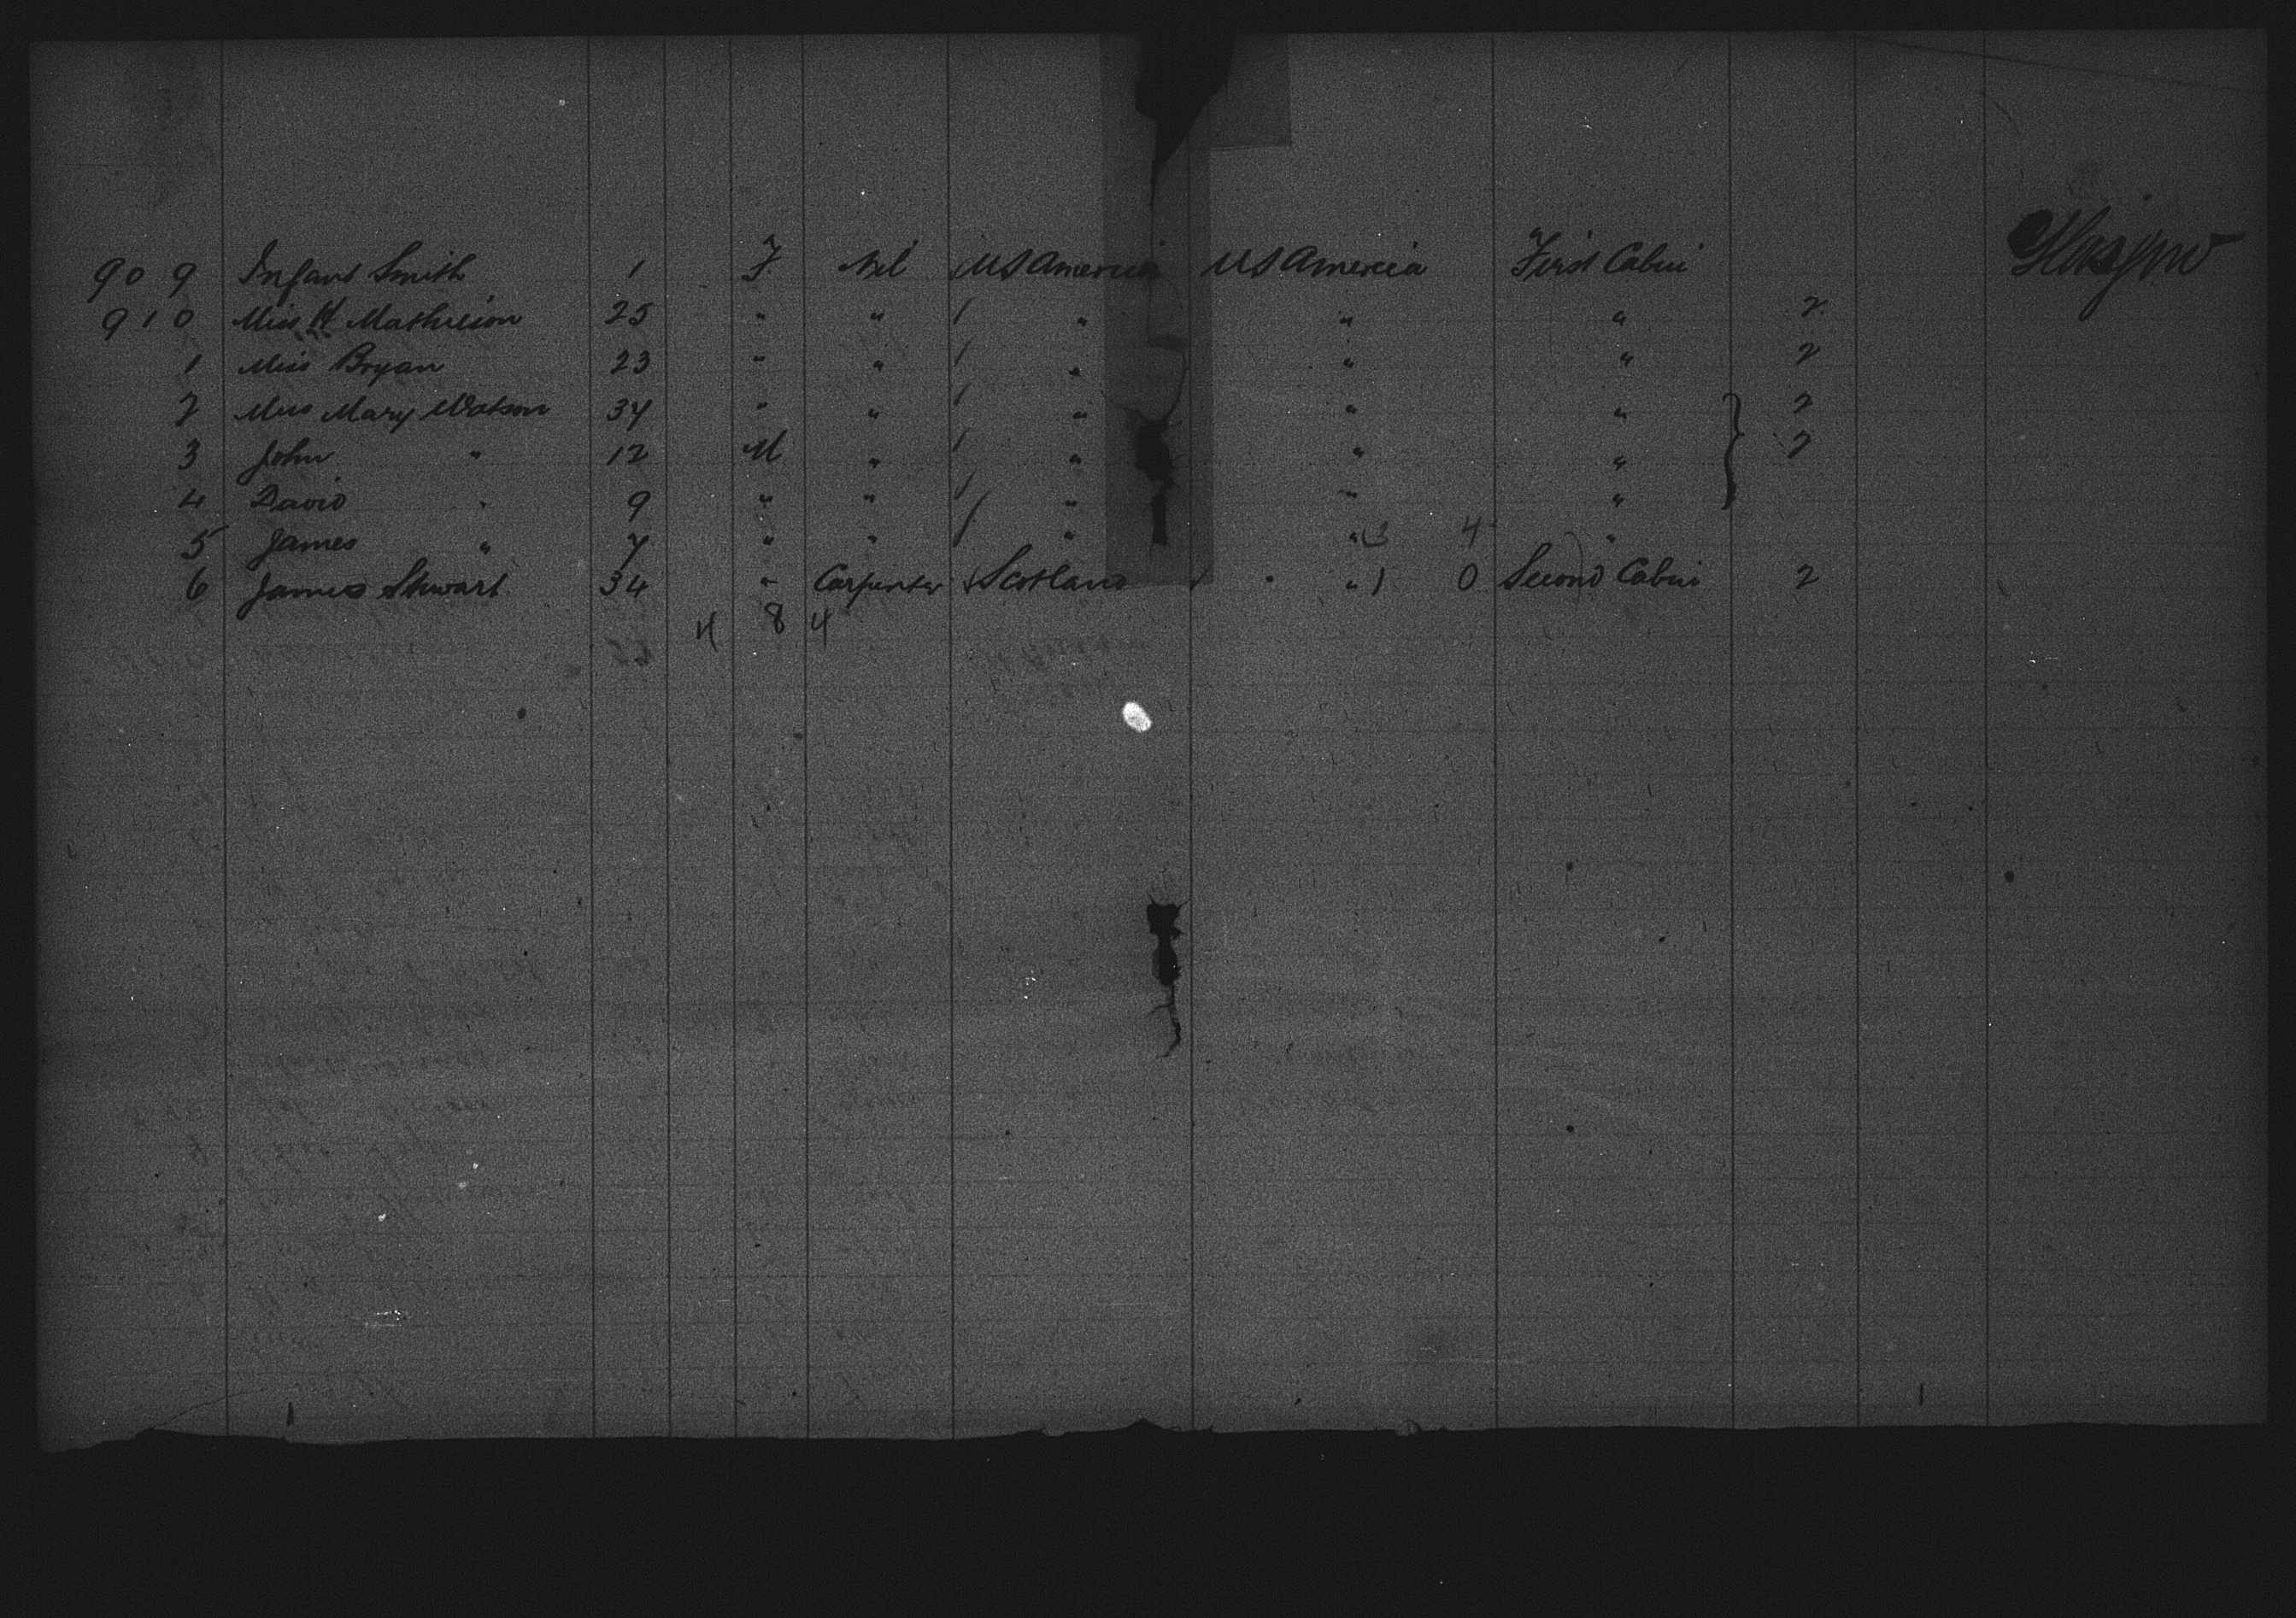 909 Infant Smith 1 F. Nil US America US America First Cabin Glasgow
910 Miss H Mathieson 25 " " / " " " 2
1 Miss Bryan 23 " " / " " " 2
2 Mrs Mary Watson 34 " " / " " " 2
3 John " 12 M " / " " " 2
4 David " 9 " " / " " "
5 James " 7 " " / " " 3 4 "
6 James Stewart 34 " Carpenter Scotland " " 1 0 Second Cabin 2
4 8 4